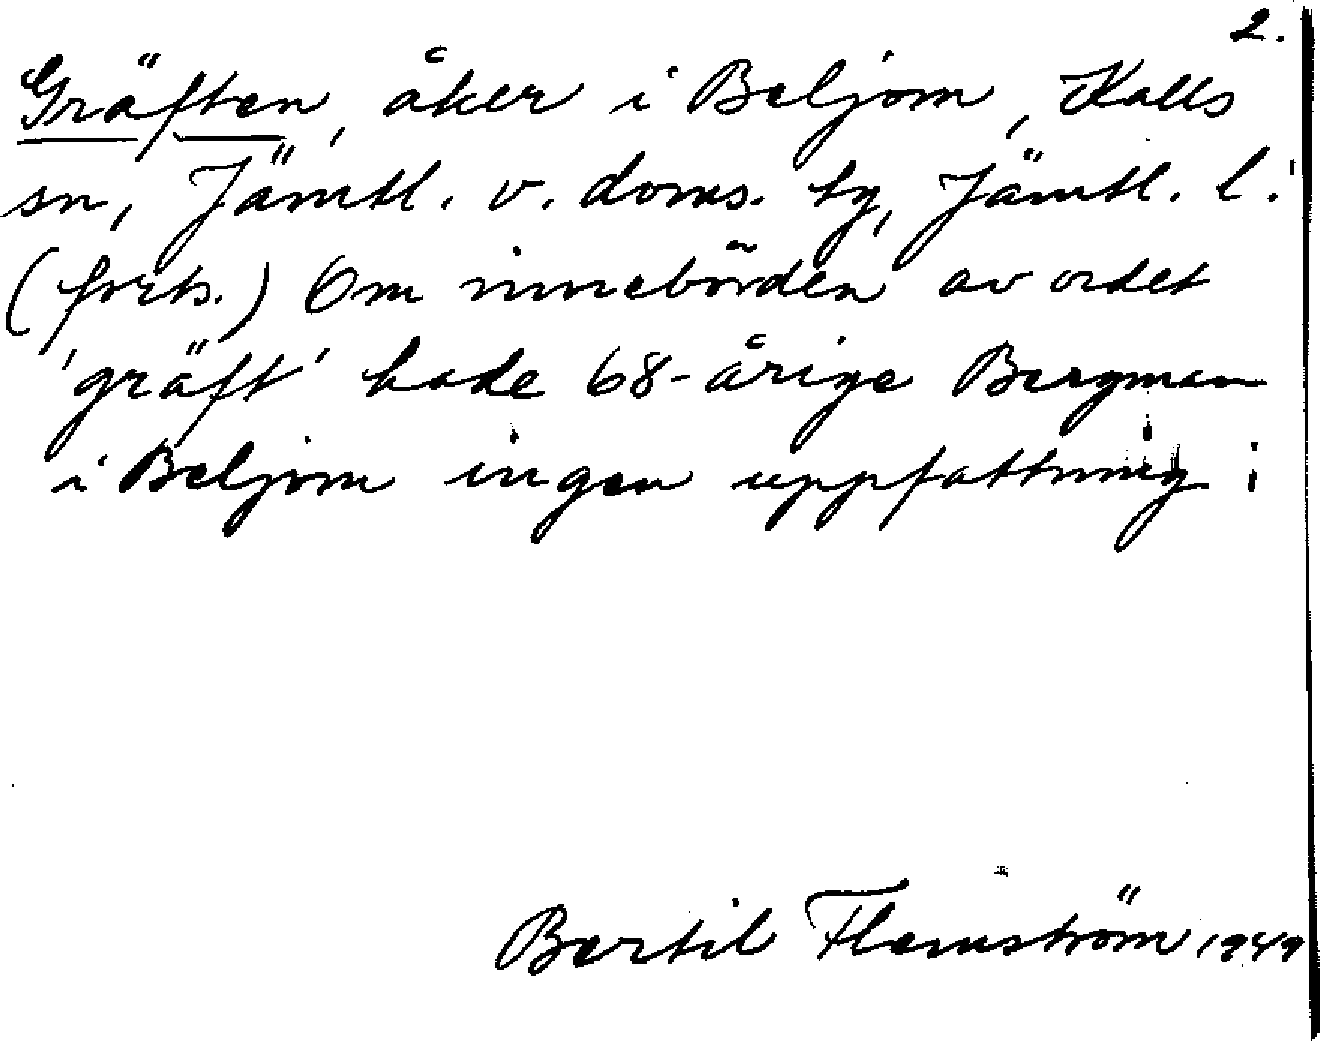 2.
Gräften, åker i Beljom, Kalls
sn, Jämtl. v. doms. tg, Jämtl. l.
(forts.) Om innebörden av ordet
'gräft' hade 68-årige Bergman
i Beljom ingen uppfattning
Bertil Flemström 1949